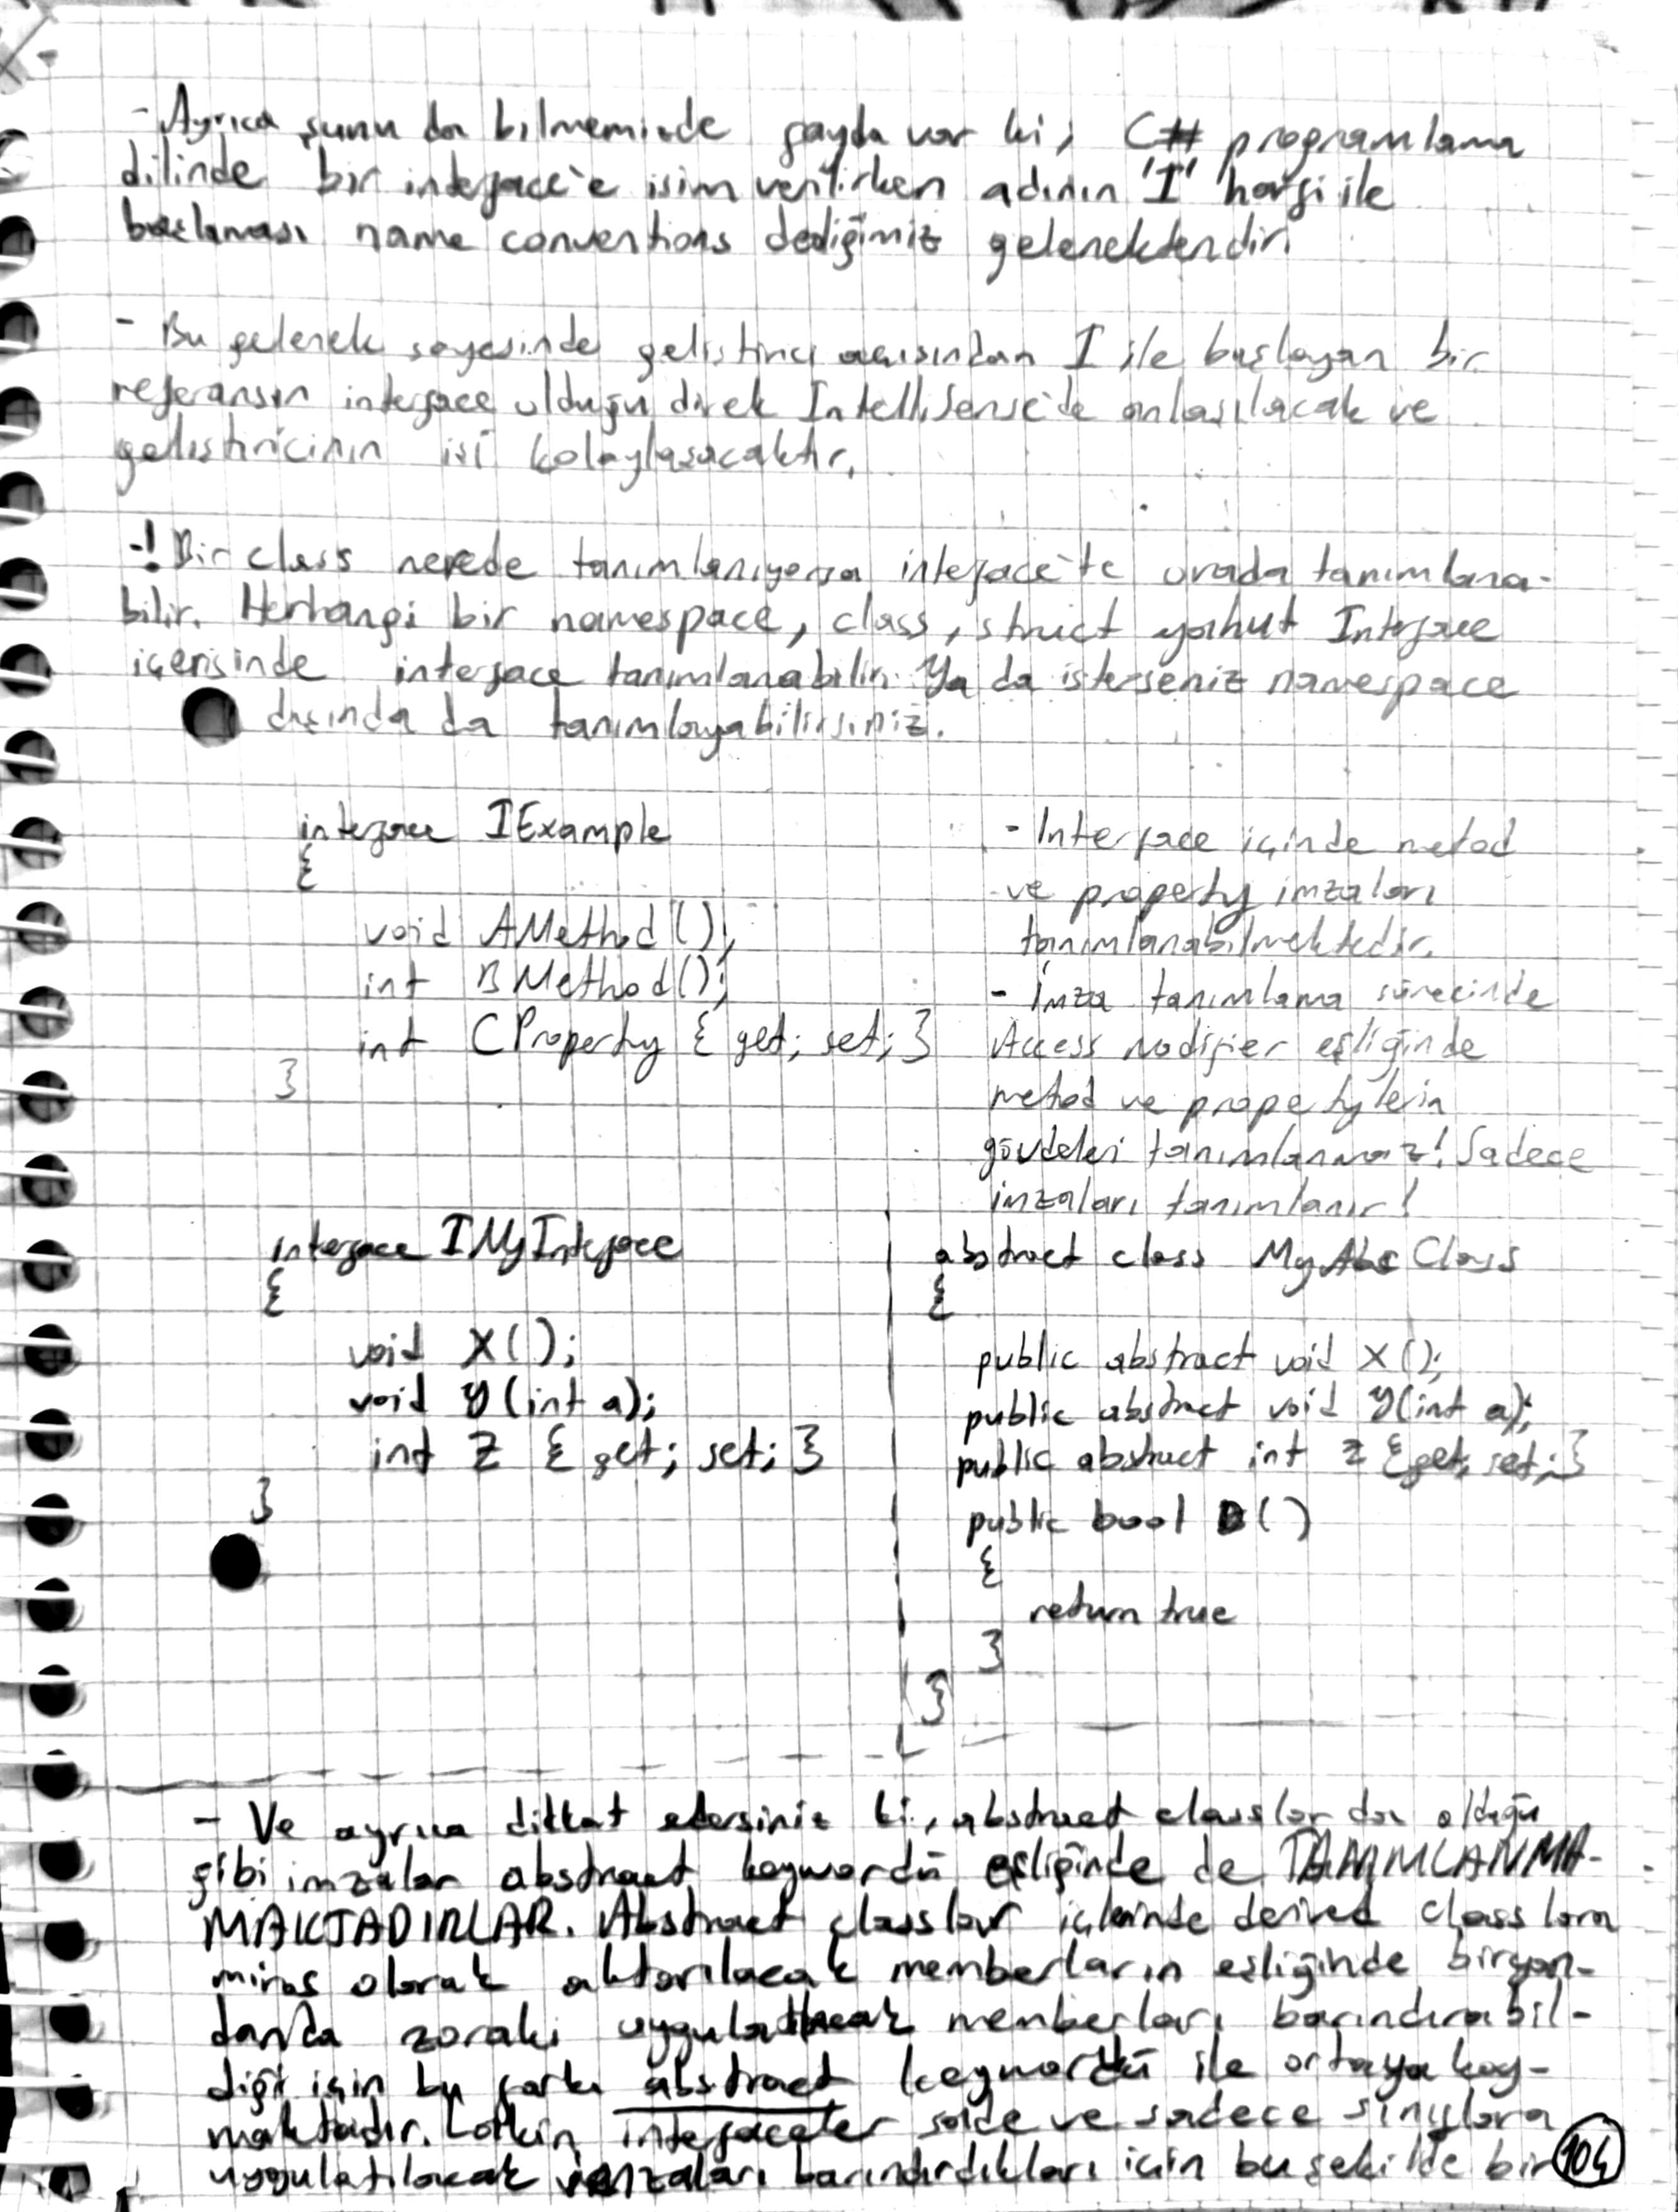 - Ayrıca şunu da bilmeminde fayda var ki, C# programlama
dilinde bir interface'e isim verilirken adının 'I' harfi ile
başlaması name conventions dediğimiz gelenektendir.
- Bu gelenek sayesinde geliştirici açısından I ile başlayan bir
referansın interface olduğu direk IntelliSense'de anlaşılacak ve
geliştiricinin işi kolaylaşacaktır.
-! Bir class nerede tanımlanıyorsa interface'te orada tanımlana-
bilir. Herhangi bir namespace, class, struct yahut Interface
içerisinde interface tanımlanabilir. Ya da isterseniz namespace
dışında da tanımlayabilirsiniz.
interface IExample
{
void AMethod();
int BMethod();
int CProperty { get; set; }
}
- Interface içinde metod
ve property imzaları
tanımlanabilmektedir.
- İmza tanımlama sürecinde
Access modifier eşliğinde
metod ve propertylerin
gövdeleri tanımlanmaz! Sadece
imzaları tanımlanır!
interface IMyInterface
{
void X();
void Y(int a);
int Z { get; set; }
}
abstract class MyAbsClass
{
public abstract void X();
public abstract void Y(int a);
public abstract int Z { get; set; }
public bool B()
{
return true
}
}
- Ve ayrıca dikkat edersiniz ki, abstract classlar da olduğu
gibi imzalar abstract keywordü eşliğinde de TANIMLANMA-
MAKTADIRLAR. Abstract classlar içlerinde derived classlara
miras olarak aktarılacak memberların eşliğinde biryan-
dan da zoraki uygulatılacak memberları barındırabil-
diği için bu farkı abstract keywordü ile ortaya koy-
maktadır. Lakin interfaceler sade ve sadece sınıflara
uygulatılacak imzaları barındırdıkları için bu şekilde bir
104